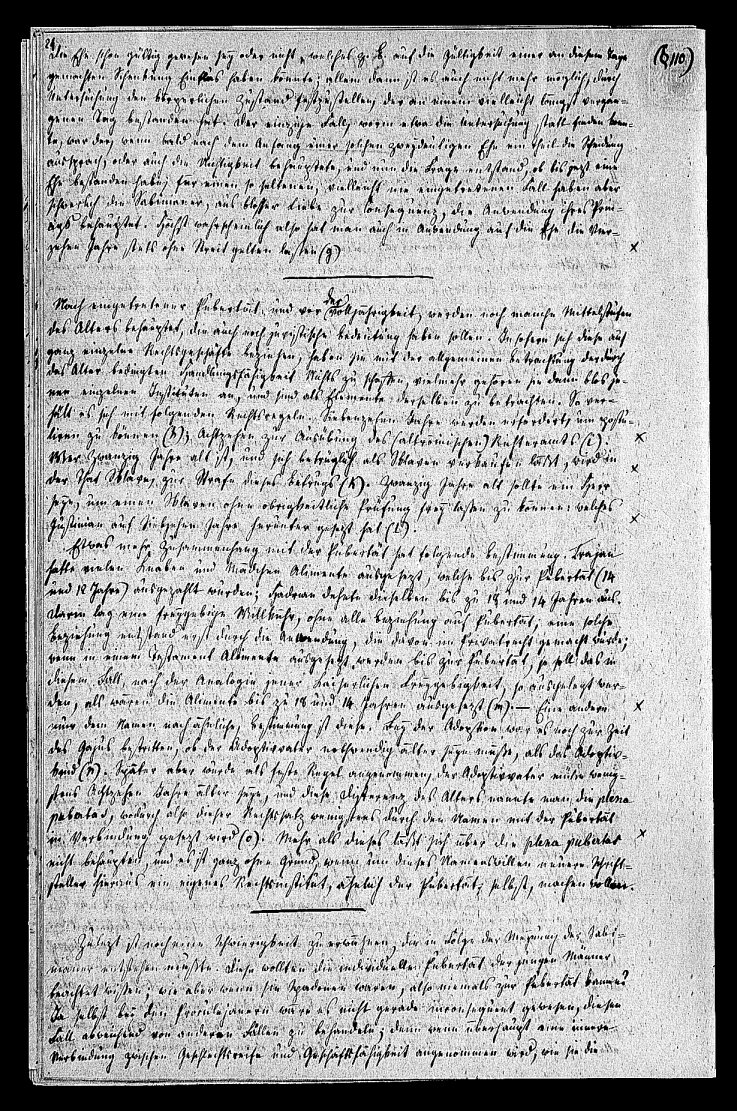 24)
die Ehe schon gültig gewesen sey oder nicht, welches z. B. auf die Gültigkeit einer an diesem Tage
gemachten Schenkung Einfluß haben könnte; allein dann ist es auch nicht mehr möglich, durch
Untersuchung den körperlichen Zustand festzustellen, der an einem vielleicht längst vergan-
genen Tag bestanden hat. Der einzige Fall, worin etwa die Untersuchung statt finden konn-
te, war der, wenn bald nach dem Anfang einer solchen zweydeutigen Ehe ein Theil die Scheidung
aussprach, oder auch die Nichtigkeit behauptete, und nun die Frage entstand, ob bis jetzt eine
Ehe bestanden habe; für einen so seltenen, vielleicht nie eingetretenen Fall haben aber
schwerlich die Sabinianer, aus bloßer Liebe zur Consequenz, die Anwendung ihres Prin-
cips behauptet. Höchst wahrscheinlich also hat man auch in Anwendung auf die Ehe die Vier-
zehen Jahre stets ohne Streit gelten lassen (g)
(§ 110)
Nach eingetretener Pubertät, und vor der Volljährigkeit, werden noch manche Mittelstufen
des Alters behauptet, die auch noch juristische Bedeutung haben sollen. Insofern sich diese auf
ganz einzelne Rechtsgeschäfte beziehen, haben sie mit der allgemeinen Betrachtung der durch
das Alter bedingten Handlungsfähigkeit Nichts zu schaffen, vielmehr gehören sie dann blos je-
nen einzelnen Instituten an, und sind als Elemente derselben zu betrachten. So ver-
hält es sich mit folgenden Rechtsregeln. Siebenzehen Jahre werden erfordert, um postu-
liren zu können (h); Achtzehen zur Ausübung des (altrömischen) Richteramts (i).
Wer Zwanzig Jahre alt ist, und sich betrüglich als Sklaven verkaufen läßt, wird in
der That Sklave, zur Strafe dieses Betrugs (k). Zwanzig Jahre alt sollte ein Herr
seyn, um einen Sklaven ohne obrigkeitliche Prüfung frey lassen zu können: welches
Justinian auf Siebzehen Jahre herunter gesetzt hat (l).
Etwas mehr Zusammenhang mit der Pubertät hat folgende Bestimmung. Trajan
hatte vielen Knaben und Mädchen Alimente ausgesetzt, welche bis zur Pubertät (14
und 12 Jahre) ausgezahlt wurden; Hadrian dehnte dieselben bis zu 18 und 14 Jahren aus.
Darin lag eine freygebige Willkühr, ohne alle Beziehung auf Pubertät; eine solche
Beziehung entstand erst durch die Anwendung, die davon im Privatrecht gemacht wurde;
wenn in einem Testament Alimente ausgesetzt werden bis zur Pubertät, so soll das in
diesem Fall, nach der Analogie jener Kaiserlichen Freygebigkeit, so ausgelegt wer-
den, als wären die Alimente bis zu 18 und 14 Jahren ausgesetzt (m). — Eine andere
nur dem Namen nach ähnliche, Bestimmung ist diese. Bey der Adoption war es noch zur Zeit
des Gajus bestritten, ob der Adoptivvater nothwendig älter seyn müsse, als das Adoptiv-
kind (n). Später aber wurde als feste Regel angenommen, der Adoptivvater müsse wenig-
stens Achtzehen Jahre älter seyn, und diese Differenz des Alters nannte man die plena
pubertas, wodurch also dieser Rechtssatz wenigstens durch den Namen mit der Pubertät
in Verbindung gesetzt wird (o). Mehr als dieses läßt sich über die plena pubertas
nicht behaupten, und es ist ganz ohne Grund, wenn um dieses Namens willen neuere Schrift-
steller hieraus ein eigenes Rechtsinstitut, ähnlich der Pubertät selbst, machen wollen.
Zuletzt ist noch eine Schwierigkeit zu erwähnen, die in Folge der Meynung der Sabi-
nianer entstehen mußte. Diese wollten die individuelle Pubertät der jungen Männer
beachtet wissen; wie aber wenn sie Spadonen waren, also niemals zur Pubertät kamen?
Ja selbst bei den Proculejanern wäre es nicht gerade inconsequent gewesen, diesen
Fall abweichend von anderen Fällen zu behandeln; denn wenn überhaupt eine innere
Verbindung zwischen Geschlechtsreife und Geschäftsfähigkeit angenommen wird, wie sie die